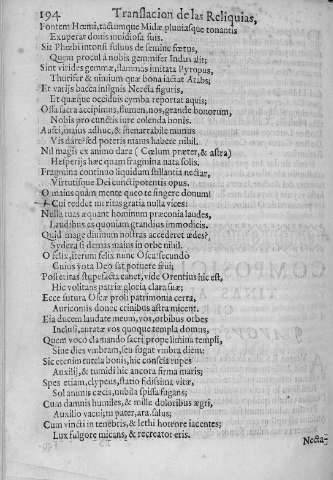 194 Translacion de las Reliquias,
Fontem Hœmi, tactumque Midæ pluuiasque tonantis
Exuperat donis inuidiosa suis.
Sit Phœbi intonsi fuluus de semine fœtus,
Quem procul à nobis gemmifer Indus alit;
Sint virides gemmæ, flammas imitata Pyropus,
Thurifer & nimium quæ bona iactat Arabs;
Et varijs bacca insignis Nerea figuris,
Et quæque occiduis cymba reportat aquis;
Ossa sacra accipimus, flumen, nos, grande bonorum,
Nobis pro cunctis iure colenda bonis.
maius adhuc, & inenarrabile munus
Vis dare? sed poteras maius habere nihil.
Nil magis ex animo dare (Cœlum præter, & astra)
Hesperijs hæc quam fragmina nata solis.
Fragmina continuo liquidum stillantia nectar,
Virtutisque Dei cunctipotentis opus.
O maius quàm mente queo te singere donum!
Cui reddet meritas gratia nulla vices:
Nulla tuas æquant hominum præconia laudes,
Laudibus es quoniam grandius immodicis.
Quid magè diuinum nostras accederet ædes?
Sydera si demas maius in orbe nihil.
O felix, iterum felix nunc Osca secundo
Cuius vota Deo sat potuere frui;
Posteritas stupefacta canet, vide Orentius hic est,
Hic volitans patriæ gloria, clara suæ;
Ecce futura Oscæ proli patrimonia certa,
Auricomis donec crinibus astra micent.
Eia ducem laudate meum, vos, orbibus orbes
Inclusi, auratæ vos quoque templa domus,
Quem voco clamando sacri prope limina templi,
Siue dies vmbram, seu fugat vmbra diem:
Sic etenim cumcta bonis, hic conscia rupes
Auxilij, & tumidi hic ancora firma maris;
Spes etiam, clypeus, statio fidissima vitæ,
Sol animis cæcis, nubila spissa fugans;
Cum damnis humiles, & mille doloribus ægri,
Auxilio vacui; tu pater, ara, salus;
Cum vincti in tenebris, & lethi horrore iacentes;
Lux fulgore micans, & recreator eris.
Necta-